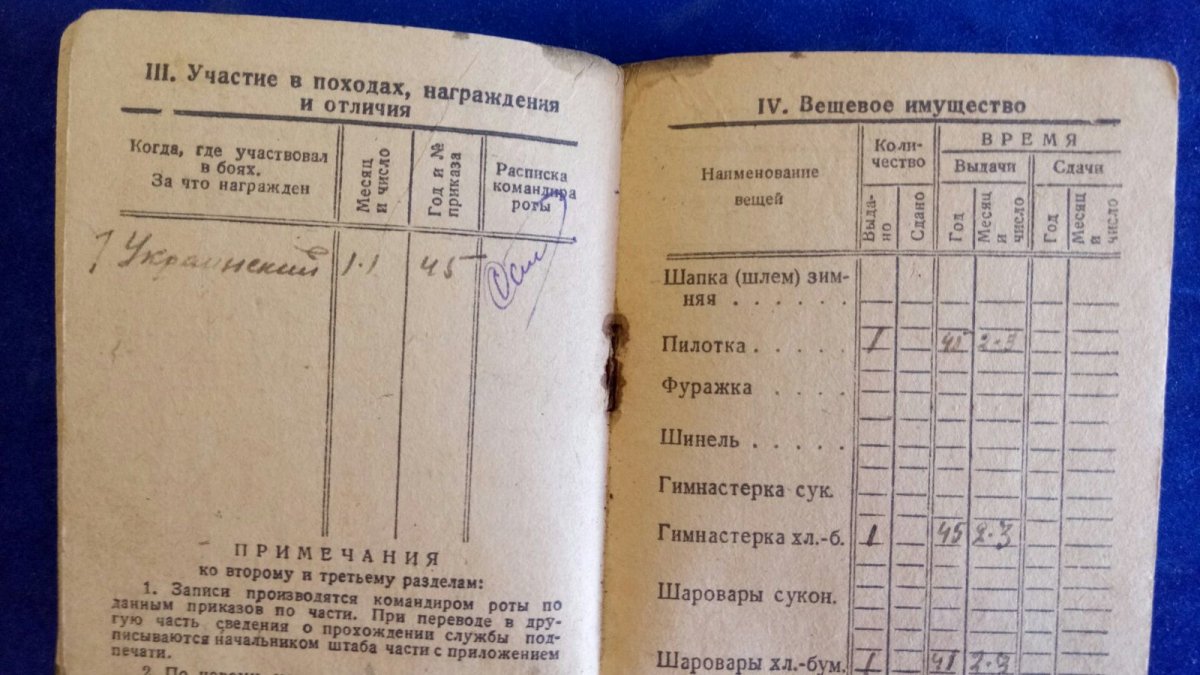 III. Участие в походах, награждения
и отличия
Когда, где участвовал
в боях.
За что награжден
Месяц
и число
Год и №
приказа
Расписка
командира
роты
Украинский 1.1 45
ПРИМЕЧАНИЯ
ко второму и третьему разделам:
1. Записи производятся командиром роты по
данным приказов по части. При переводе в дру-
гую часть сведения о прохождении службы под-
писываются начальником штаба части с приложением
печати.
2. По
IV. Вещевое имущество
Наименование
вещей
Коли-
чество
ВРЕМЯ
Выдачи
Сдачи
Выда-
но
Сдано
Год
Месяц
и
число
Год
Месяц
и
число
Шапка (шлем) зим-
няя . . . . . .
Пилотка . . . . . 1 45 2-3
Фуражка . . . .
Шинель . . . . .
Гимнастерка сук.
Гимнастерка хл.-б. 1 45 2-3
Шаровары сукон.
Шаровары хл.-бум. 1 2-3